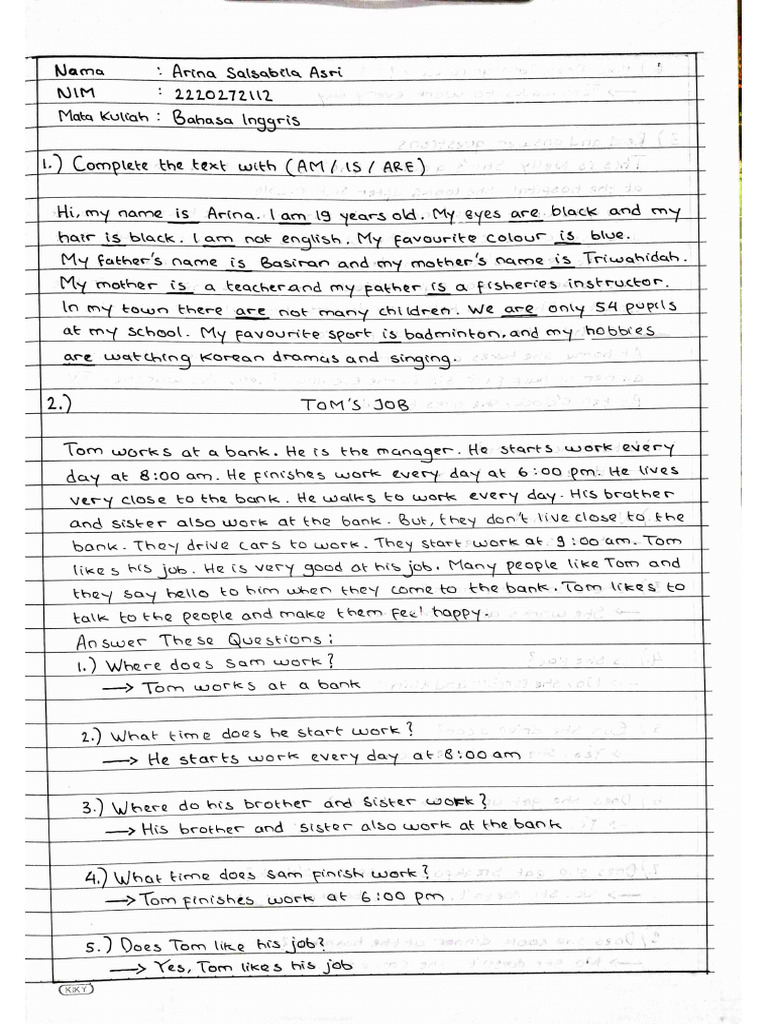 Nama : Arina Salsabila Asri
NIM : 2220272112
Mata Kuliah : Bahasa Inggris
1.) Complete the text with (AM / IS / ARE)
Hi, my name is Arina. I am 19 years old. My eyes are black and my
hair is black. I am not english. My favourite colour is blue.
My father's name is Basiran and my mother's name is Triwahidah.
My mother is a teacher and my father is a fisheries instructor.
In my town there are not many children. We are only 54 pupils
at my school. My favourite sport is badminton, and my hobbies
are watching Korean dramas and singing.
2.) TOM'S JOB
Tom works at a bank. He is the manager. He starts work every
day at 8:00 am. He finishes work every day at 6:00 pm. He lives
very close to the bank. He walks to work every day. His brother
and sister also work at the bank. But, they don't live close to the
bank. They drive cars to work. They start work at 9:00 am. Tom
likes his job. He is very good at his job. Many people like Tom and
they say hello to him when they come to the bank. Tom likes to
talk to the people and make them feel happy.
Answer These Questions:
1.) Where does sam work?
→ Tom works at a bank
2.) What time does he start work?
→ He starts work every day at 8:00 am
3.) Where do his brother and sister work?
→ His brother and sister also work at the bank
4.) What time does sam finish work?
→ Tom finishes work at 6:00 pm
5.) Does Tom like his job?
→ Yes, Tom likes his job
KIKY